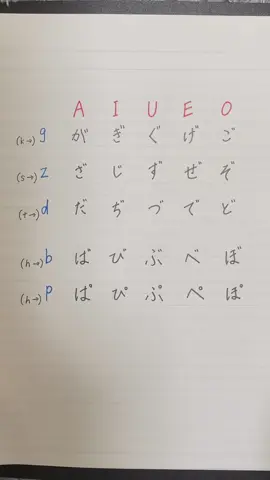 A I U E O
(k→) g が ぎ ぐ げ ご
(s→) z ざ じ ず ぜ ぞ
(t→) d だ ぢ づ で ど
(h→) b ば び ぶ べ ぼ
(h→) p ぱ ぴ ぷ ぺ ぽ